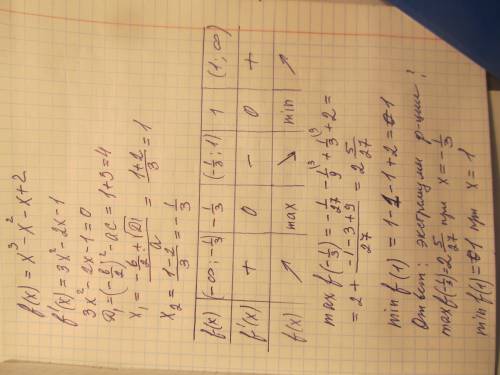 f(x) = x³ - x² - x + 2
f'(x) = 3x² - 2x - 1
3x² - 2x - 1 = 0
D₁ = (-b/2)² - ac = 1 + 3 = 4
x₁ = (-b/2 + √D₁)/a = (1+2)/3 = 1
x₂ = (1-2)/3 = -1/3
f(x) | (-∞; -1/3) | -1/3 | (-1/3; 1) | 1 | (1; ∞)
f'(x) | + | 0 | - | 0 | +
f(x) | ↗ | max | ↘ | min | ↗
max f(-1/3) = -1/27 - 1/9 \³ + 1/3 \⁹ + 2 =
= 2 + (-1 - 3 + 9)/27 = 2 5/27
min f(1) = 1 - 1 - 1 + 2 = 1
Ответ: экстремумы ф-ции:
max f(-1/3) = 2 5/27 при x = -1/3
min f(1) = 1 при x = 1